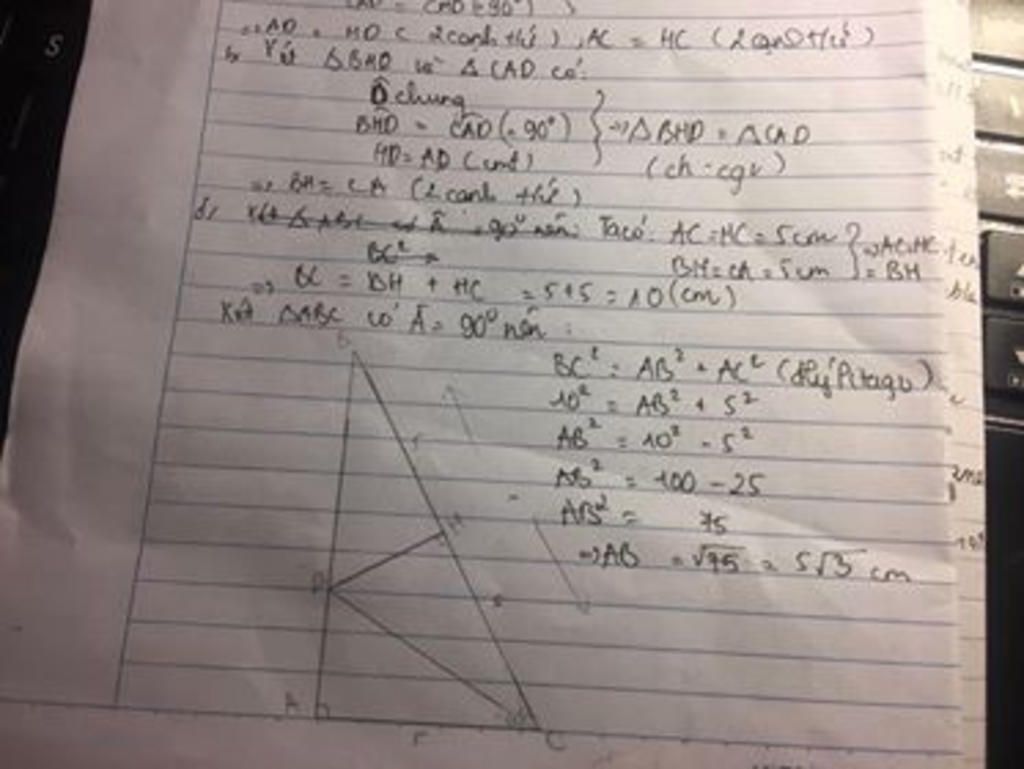 = CMD = 90°)
=> AD = HD (2 cạnh t/ứ), AC = HC (2 cạnh t/ứ)
b, Xét ΔBHD và ΔCAD có:
D̂ chung
BHD = CAD (= 90°)
HD = AD (cmt)
=> ΔBHD = ΔCAD
(ch - cgv)
=> BH = CA (2 cạnh t/ứ)
d, Xét ΔABC có Â = 90° nên: Ta có: AC = HC = 5 cm
BH = CA = 5 cm
=> AC = HC
= BH
BC² =
=> BC = BH + HC = 5 + 5 = 10 (cm)
Xét ΔABC có Â = 90° nên:
BC² = AB² + AC² (đlý Pitago)
10² = AB² + 5²
AB² = 10² - 5²
AB² = 100 - 25
AB² = 75
=> AB = √75 = 5√3 cm
B
H
D
A
C
S